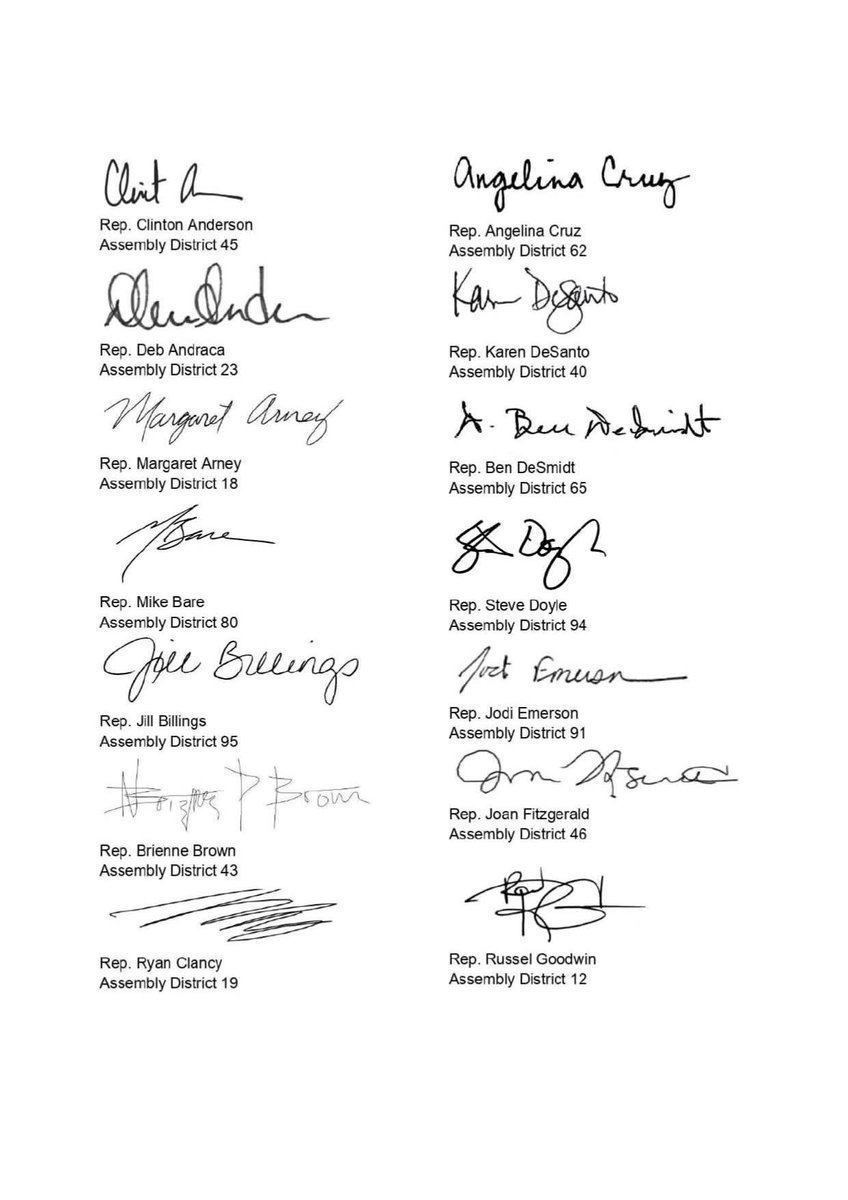 Clint A
Rep. Clinton Anderson
Assembly District 45
Rep. Deb Andraca
Assembly District 23
Margaret Arney
Rep. Margaret Arney
Assembly District 18
MBare
Rep. Mike Bare
Assembly District 80
Jill Billings
Rep. Jill Billings
Assembly District 95
Brown
Rep. Brienne Brown
Assembly District 43
Rep. Ryan Clancy
Assembly District 19
Angelina Cruz
Rep. Angelina Cruz
Assembly District 62
Karen DeSanto
Rep. Karen DeSanto
Assembly District 40
A. Ben DeSmidt
Rep. Ben DeSmidt
Assembly District 65
Doyle
Rep. Steve Doyle
Assembly District 94
Emerson
Rep. Jodi Emerson
Assembly District 91
Rep. Joan Fitzgerald
Assembly District 46
Rep. Russel Goodwin
Assembly District 12